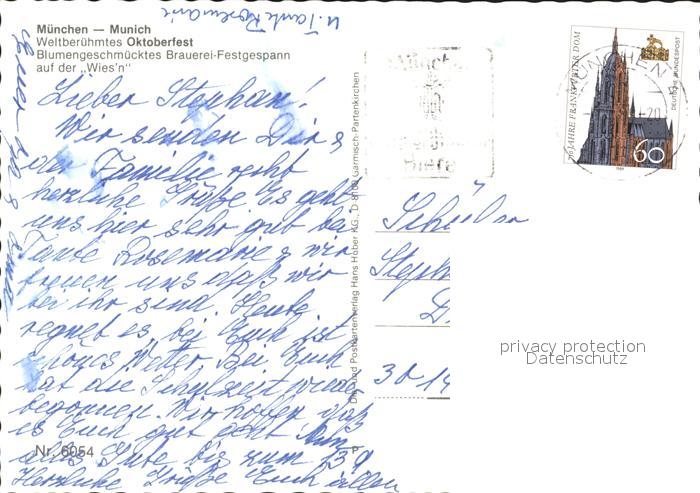 München — Munich
Weltberühmtes Oktoberfest
Blumengeschmücktes Brauerei-Festgespann
auf der „Wies'n"
u. Tante Rosemarie
Lieber Stephan!
Wir senden Dir &
der Familie recht
herzliche Grüße Es geht
uns hier sehr gut bei
Tante Rosemarie & wir
freuen uns daß wir
bei ihr sind. Heute
regnet es, bei Euch ist
schönes Wetter Bei Euch
hat die Schulzeit wieder
begonnen. Wir hoffen daß
es Euch gut geht Nun
alles Gute bis zum 13.9
Herzliche Grüße Euch allen
Euer Opa & Oma
Nr. 6054
Postkartenverlag Hans Huber KG., D 8100 Garmisch-Partenkirchen
MÜNCHEN
JAHRE FRANKFURTER DOM
DEUTSCHE BUNDESPOST
60
1989
Schüler
Steph
D
30 14
privacy protection
Datenschutz